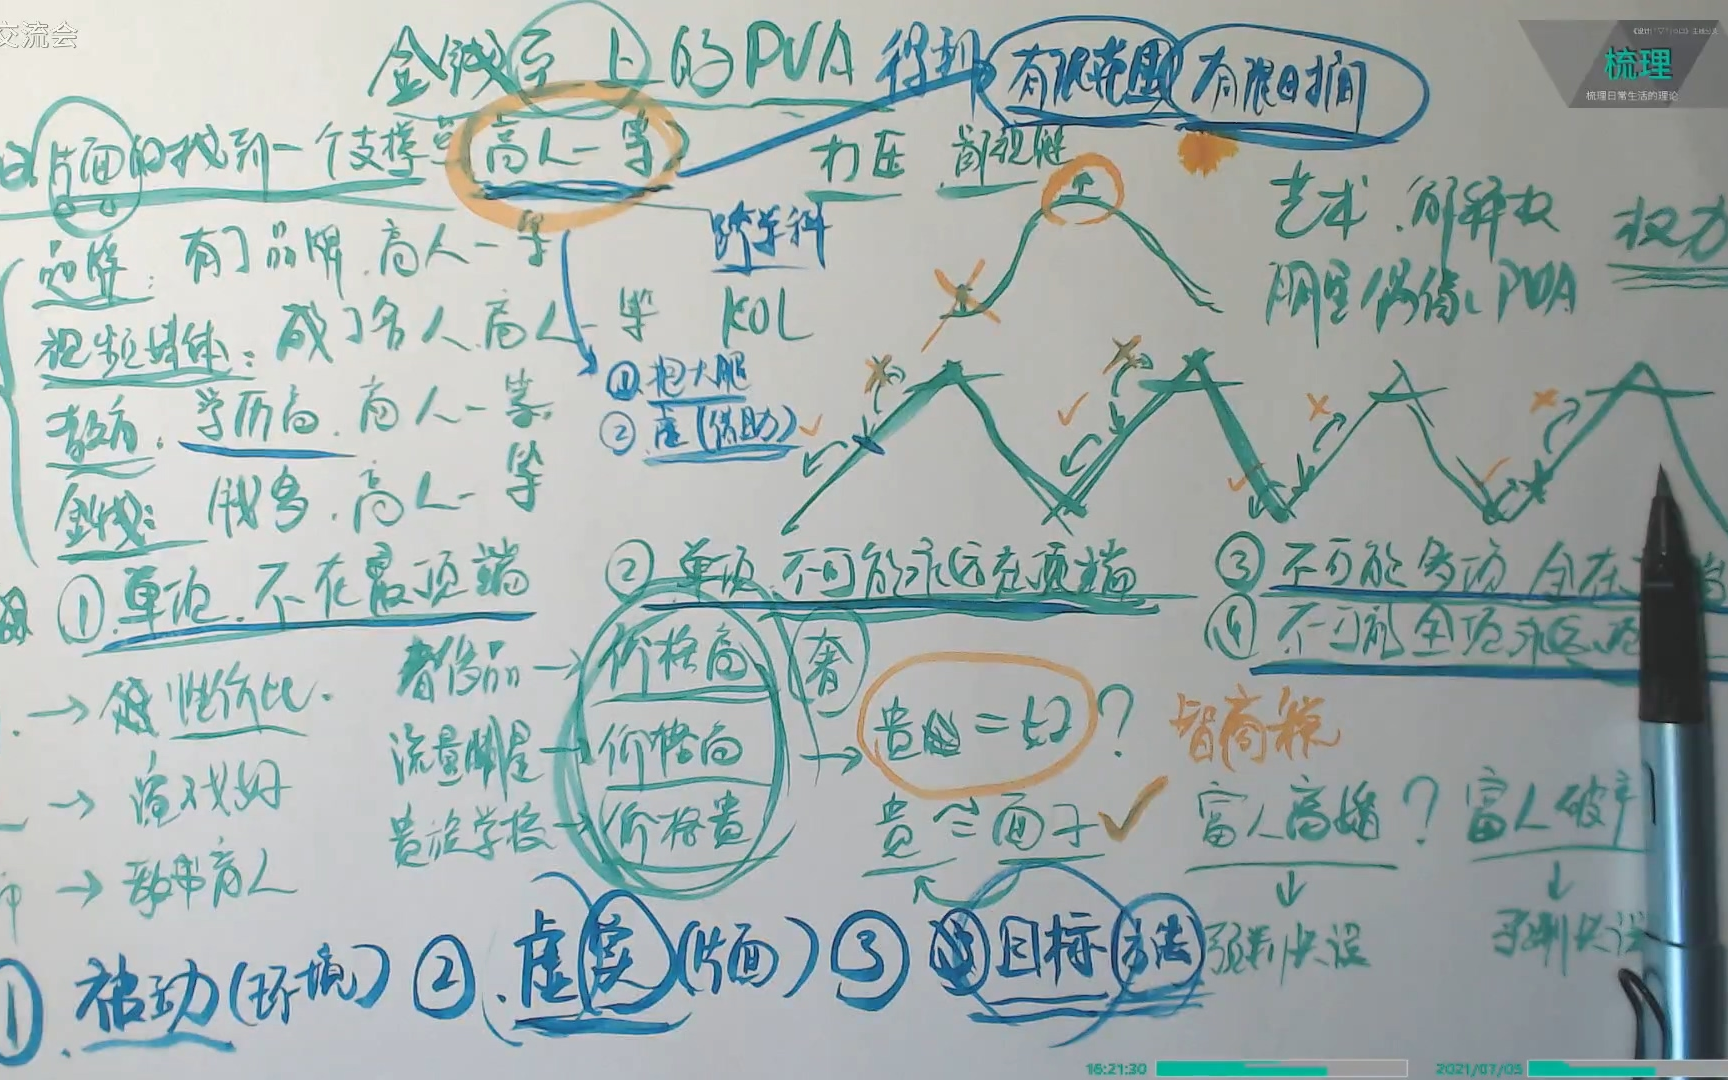 交流会
梳理
梳理日常生活的理论
金钱至上的PUA 得到 有限范围 有限时间
片面的找到一个支撑点 高人一等 打压 鄙视链
上
艺术.解释权 权力
跨学科
明星偶像、PUA
品牌：有了品牌.高人一等
视频媒体：成了名人.高人一等 KOL
①抱大腿
教育.学历高.高人一等
②虚(借助)
金钱：钱多.高人一等
①单项.不在最顶端 ②单项.不可能永远在顶端 ③不可能多项全在
④不可能全项永远
→ 性价比. 奢侈品→价格高 奢
流量明星→价格高 → 贵 = 好? 智商税
→ 演戏好
贵族学校→价格贵 贵 面子 ✓ 富人离婚? 富人破产
→ 育人
↓ ↓
①被动(环境) ②虚实(片面) ③目标方法 预判失误
16:21:30 2021/07/05